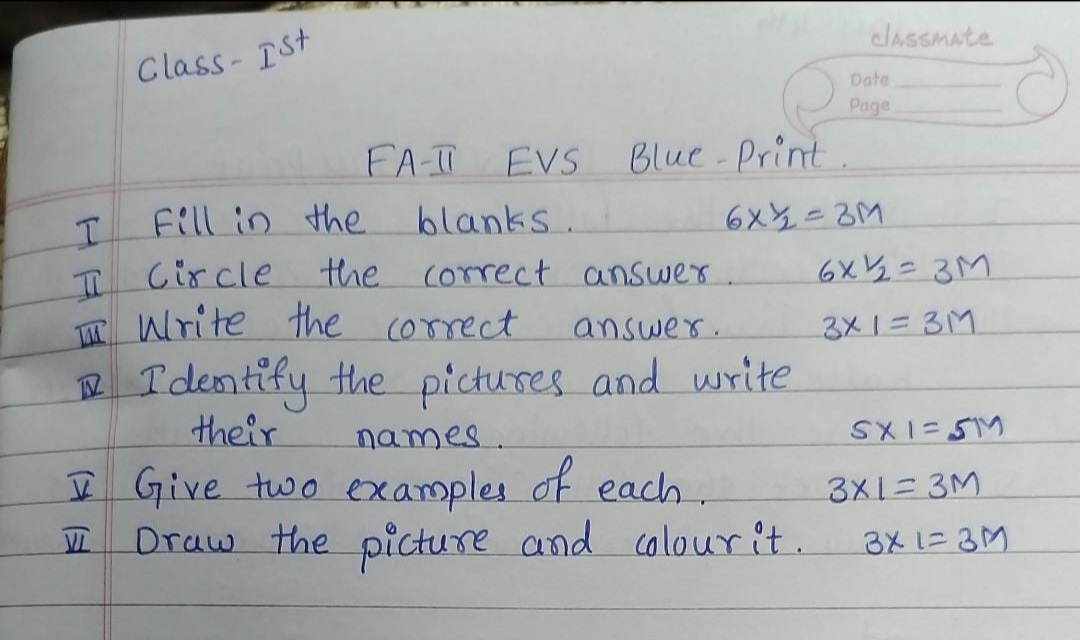 Class - Ist
classmate
Date
Page
FA-II EVS Blue-Print.
I Fill in the blanks. 6x½ = 3M
II Circle the correct answer. 6x½ = 3M
III Write the correct answer. 3x1 = 3M
IV Identify the pictures and write
their names. 5x1 = 5M
V Give two examples of each. 3x1 = 3M
VI Draw the picture and colour it. 3x1 = 3M